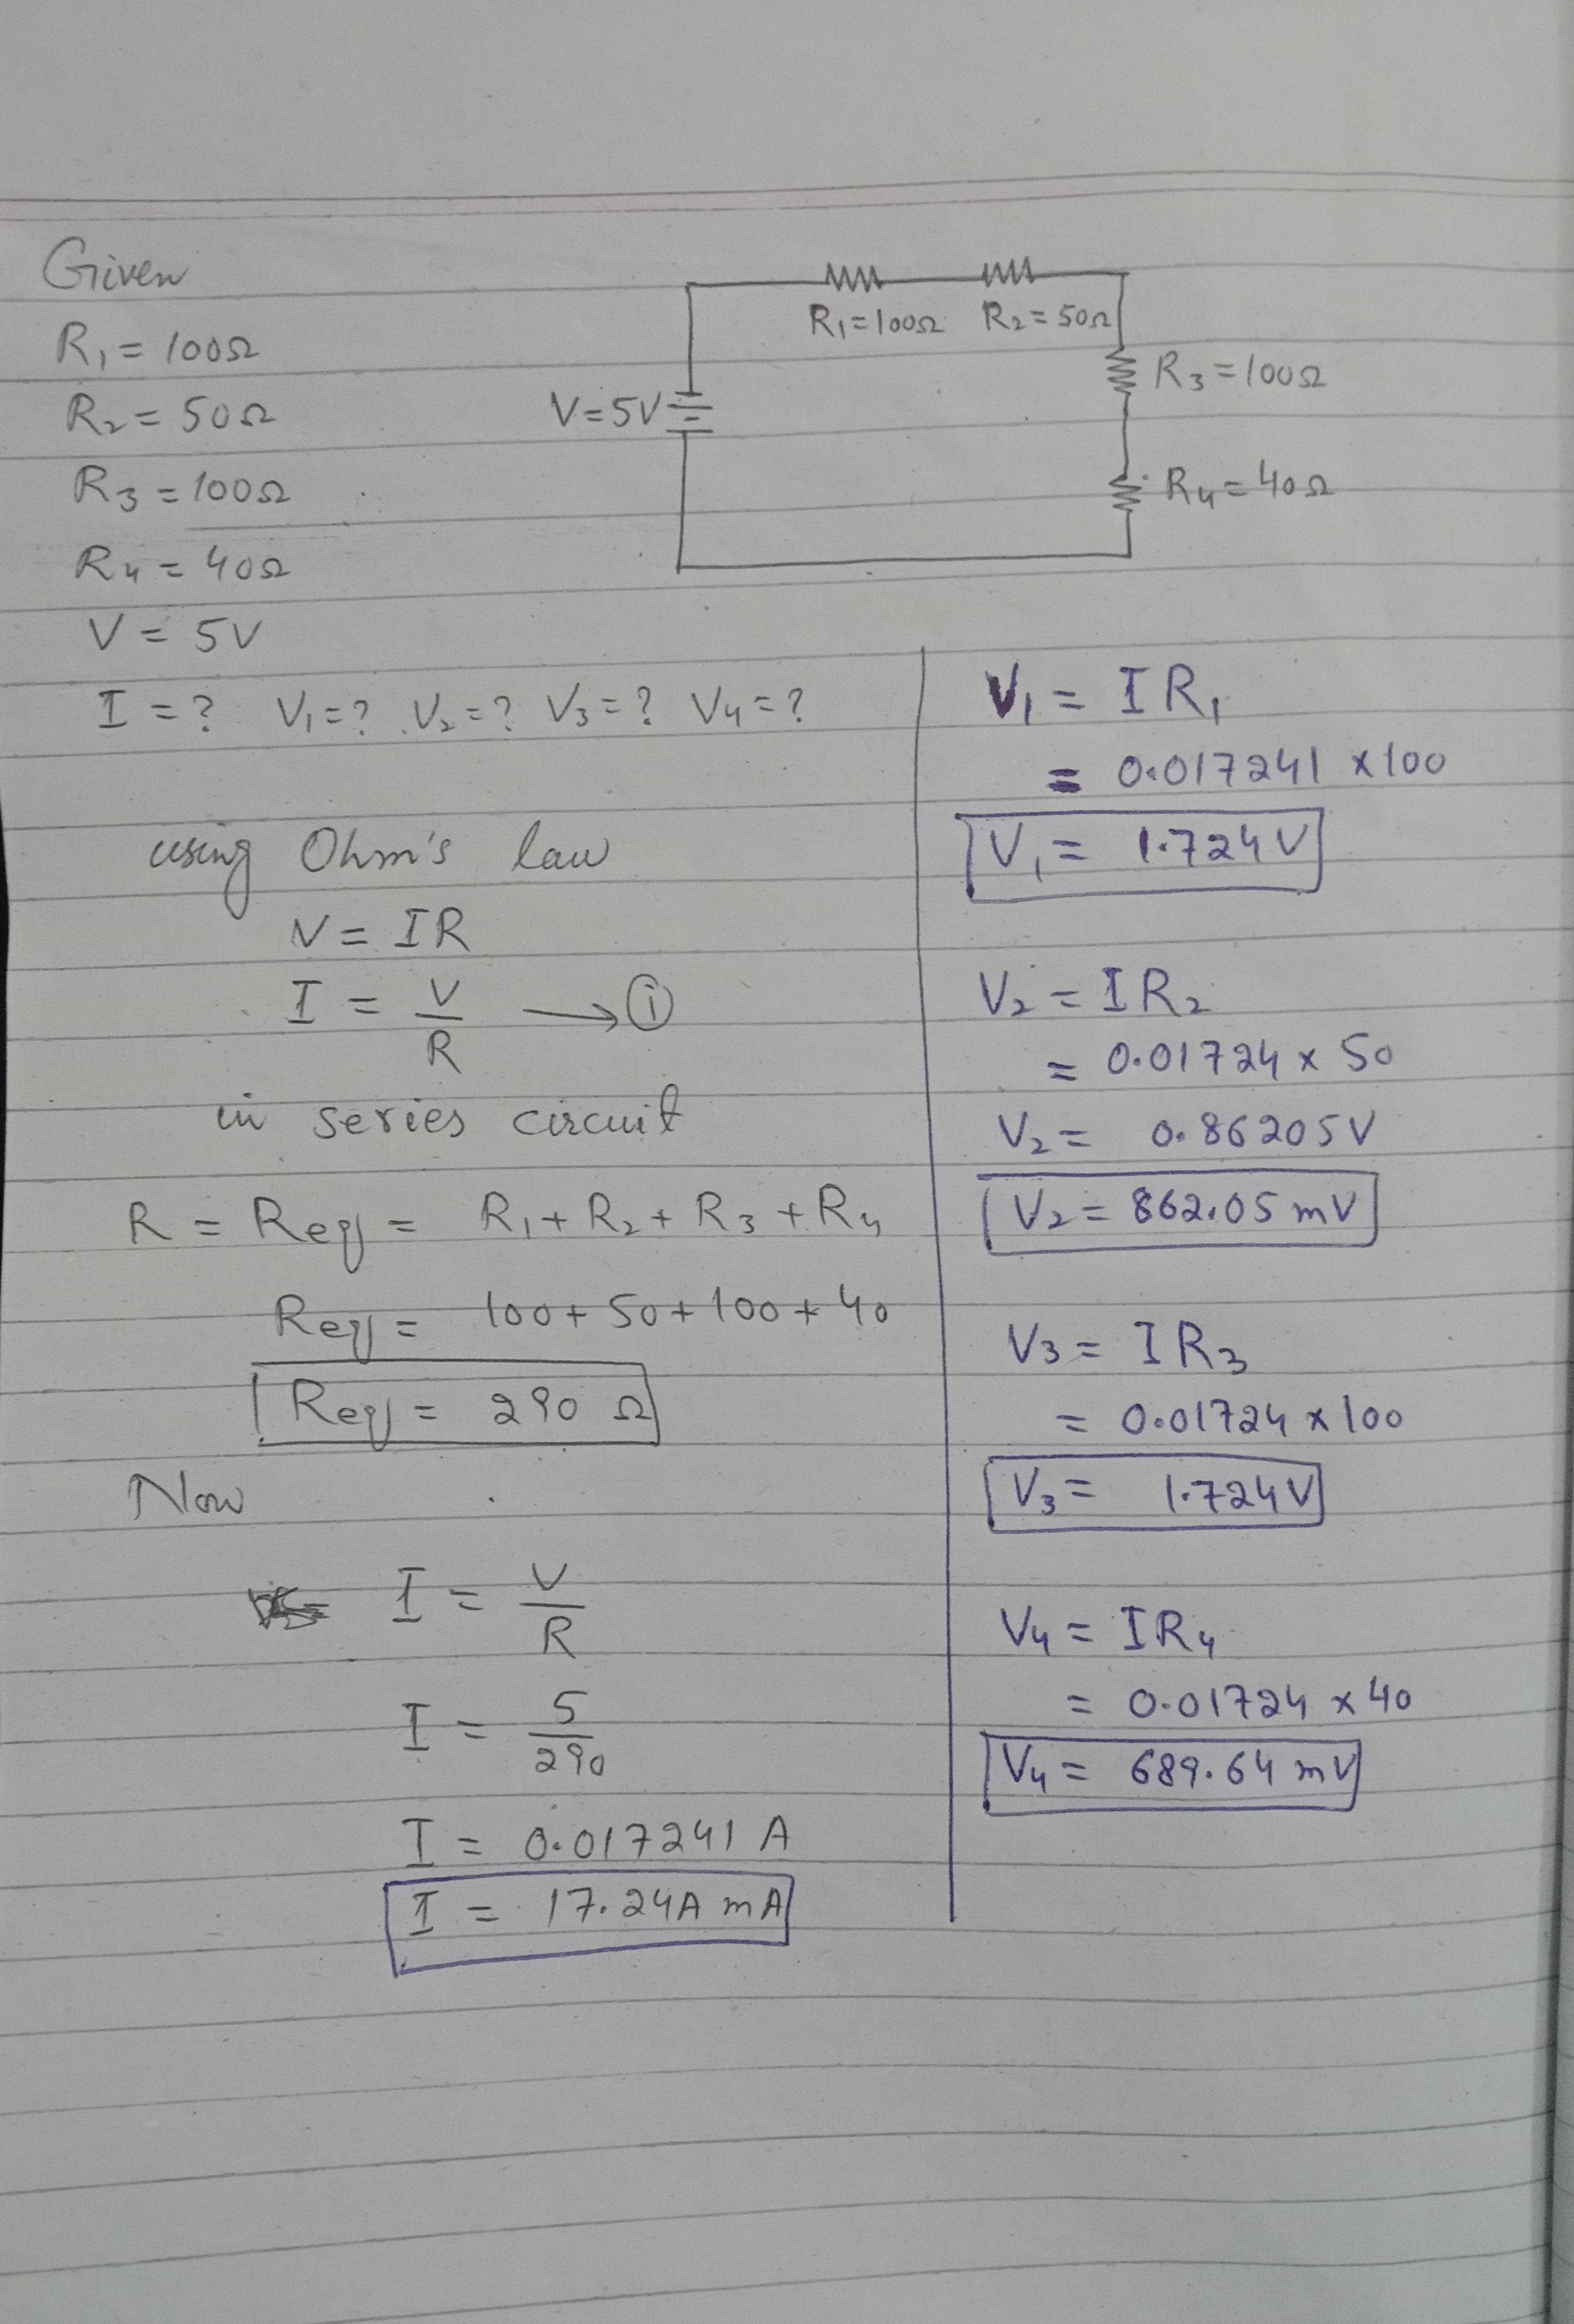 Given
R₁ = 100Ω
R₂ = 50Ω
R₃ = 100Ω
R₄ = 40Ω
V = 5V
I = ? V₁ = ? V₂ = ? V₃ = ? V₄ = ?
R₁ = 100Ω R₂ = 50Ω
R₃ = 100Ω
V = 5V
R₄ = 40Ω
using Ohm's law
V = IR
I = V/R → ⓘ
in series circuit
R = Req = R₁ + R₂ + R₃ + R₄
Req = 100 + 50 + 100 + 40
Req = 290 Ω
Now
I = V/R
I = 5/290
I = 0.017241 A
I = 17.24A mA
V₁ = IR₁
= 0.017241 × 100
V₁ = 1.724V
V₂ = IR₂
= 0.01724 × 50
V₂ = 0.86205V
V₂ = 862.05 mV
V₃ = IR₃
= 0.01724 × 100
V₃ = 1.724V
V₄ = IR₄
= 0.01724 × 40
V₄ = 689.64 mV